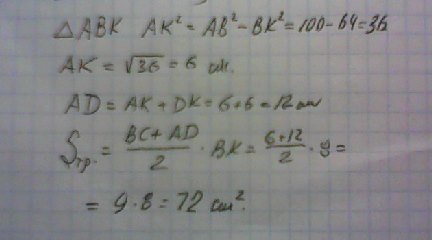 △ABK AK² = AB² - BK² = 100 - 64 = 36
AK = √36 = 6 см.
AD = AK + DK = 6 + 6 = 12 см
Sтр. = (BC + AD)/2 · BK = (6 + 12)/2 · 8 =
= 9 · 8 = 72 см².